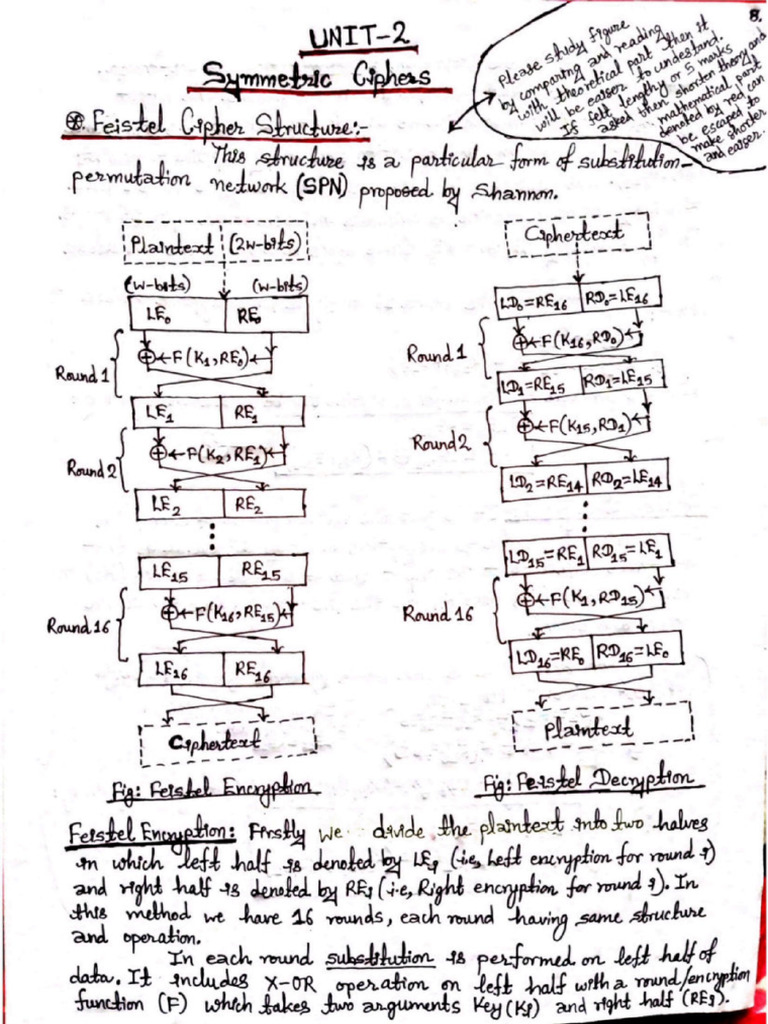 8.
UNIT-2
Symmetric Ciphers
Please study figure
by comparing and reading
with theoretical part then it
will be easier to understand.
If felt lengthy or 5 marks
asked then shorten theory and
mathematical part
denoted by red can
be escaped to
make shorter
and easier.
⊛. Feistel Cipher Structure:-
This structure is a particular form of substitution-
permutation network (SPN) proposed by Shannon.
Plaintext (2w-bits)
(w-bits) (w-bits)
LE₀ RE₀
Round 1
⊕←F(K₁,RE₀)←
LE₁ RE₁
Round 2
⊕←F(K₂,RE₁)←
LE₂ RE₂
LE₁₅ RE₁₅
Round 16
⊕←F(K₁₆,RE₁₅)←
LE₁₆ RE₁₆
Ciphertext
Fig: Feistel Encryption
Ciphertext
LD₀=RE₁₆ RD₀=LE₁₆
Round 1
⊕←F(K₁₆,RD₀)←
LD₁=RE₁₅ RD₁=LE₁₅
Round 2
⊕←F(K₁₅,RD₁)←
LD₂=RE₁₄ RD₂=LE₁₄
LD₁₅=RE₁ RD₁₅=LE₁
Round 16
⊕←F(K₁,RD₁₅)←
LD₁₆=RE₀ RD₁₆=LE₀
Plaintext
Fig: Feistel Decryption
Feistel Encryption: Firstly we divide the plaintext into two halves
in which left half is denoted by LEᵢ (i.e, Left encryption for round i)
and right half is denoted by REᵢ (i.e, Right encryption for round i). In
this method we have 16 rounds, each round having same structure
and operation.
In each round substitution is performed on left half of
data. It includes X-OR operation on left half with a round/encryption
function (F) which takes two arguments Key(Kᵢ) and right half (REᵢ).